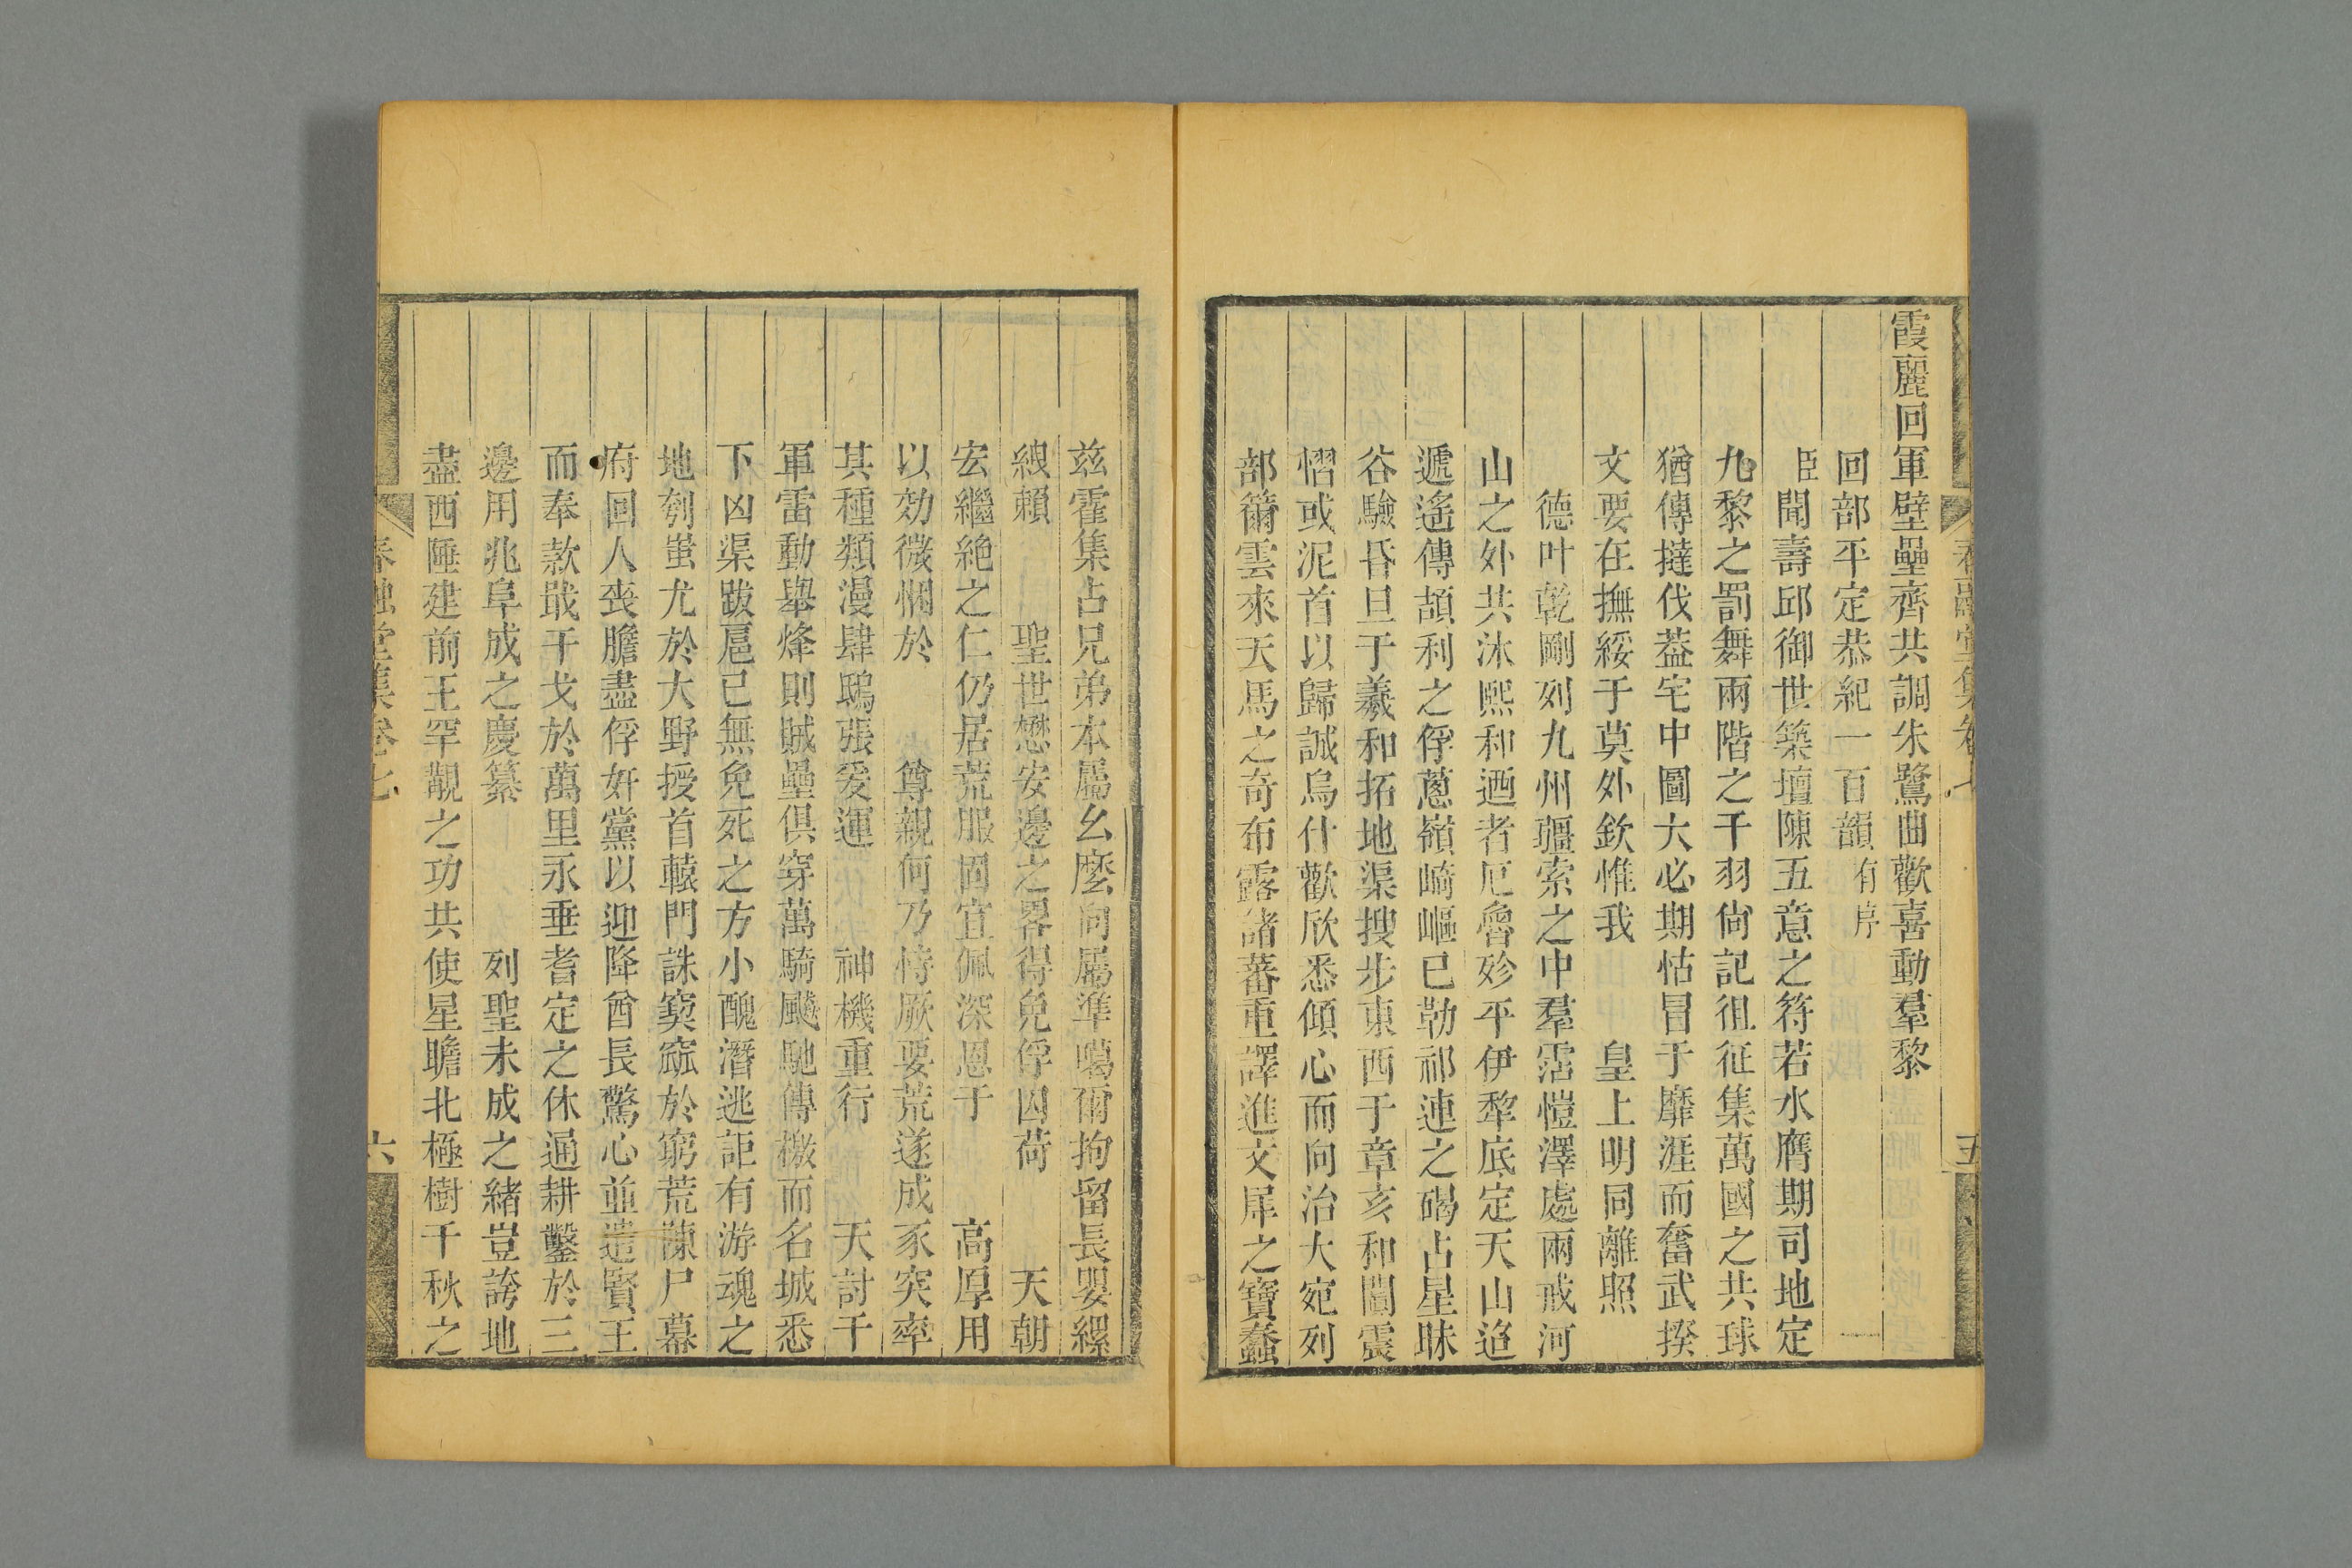 春融堂集卷七
五
霞麗回軍壁壘齊共調朱鷺曲歡喜動羣黎
回部平定恭紀一百韻有序
臣聞壽邱御世築壇陳五意之符若水膺期司地定
九黎之罰舞兩階之干羽尙記徂征集萬國之共球
猶傳撻伐葢宅中圖大必期怙冒于靡涯而奮武揆
文要在撫綏于莫外欽惟我 皇上明同離照
德叶乾剛列九州疆索之中羣霑愷澤處兩戒河
山之外共沐熙和迺者厄魯殄平伊犂底定天山迢
遞遙傳頡利之俘蔥嶺崎嶇已勒祁連之碣占星昧
谷驗昏旦于羲和拓地渠搜步東西于章亥和闐震
慴或泥首以歸誠烏什歡欣悉傾心而向治大宛列
部籋雲來天馬之奇布露諸蕃重譯進文犀之寶蠢
兹霍集占兄弟本屬么麽向屬準噶爾拘留長嬰縲
絏賴 聖世懋安邊之畧得免俘囚荷 天朝
宏繼絶之仁仍居荒服固宜佩深恩于 高厚用
以効微悃於 尊親何乃恃厥要荒遂成豕突率
其種類漫肆鴟張爰運 神機重行 天討千
軍雷動舉烽則賊壘俱穿萬騎飈馳傳檄而名城悉
下凶渠跋扈已無免死之方小醜潛逃詎有游魂之
地刳蚩尤於大野授首轅門誅窫窳於窮荒陳尸幕
府回人喪膽盡俘奸黨以迎降酋長驚心並遣賢王
而奉款戢干戈於萬里永垂耆定之休通耕鑿於三
邊用兆阜成之慶纂 列聖未成之緒豈誇地
盡西陲建前王罕覯之功共使星瞻北極樹千秋之
春融堂集卷七
六